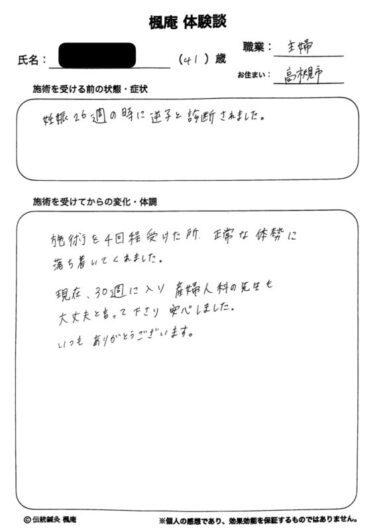 楓庵 体験談
氏名：
（41）歳
職業： 主婦
お住まい： 高槻市
施術を受ける前の状態・症状
妊娠26週の時に逆子と診断されました。
施術を受けてからの変化・体調
施術を4回程受けた所、正常な体勢に
落ち着いてくれました。
現在、30週に入り産婦人科の先生も
大丈夫と言って下さり安心しました。
いつもありがとうございます。
© 伝統鍼灸 楓庵
※個人の感想であり、効果効能を保証するものではありません。